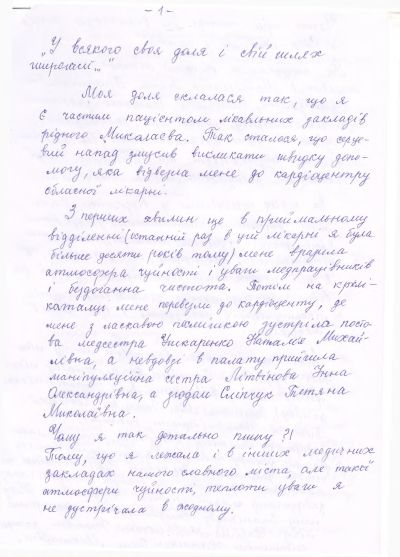 - 1 -
„У всякого своя доля і свій шлях
широкий..."
Моя доля склалася так, що я
є частим пацієнтом лікавльних закладів
рідного Миколаєва. Так сталося, що серце-
вий напад змусив викликати швидку допо-
могу, яка відвезла мене до кардіоцентру
обласної лікарні.
З перших хвилин ще в приймальному
відділенні (останній раз в цій лікарні я була
більше десяти років тому) мене вразила
атмосфера чуйності і уваги медпрацівників
і бездоганна чистота. Потім на кріслі-
каталці мене перевезли до кардіоцентру, де
мене з ласкавою посмішкою зустріла посто-
ва медсестра Наталія Михай-
лівна, а невдовзі в палату прийшла
маніпуляційна сестра Літвінова Інна
Олександрівна, а згодом Сліпчук Тетяна
Миколаївна.
Чому я так детально пишу?!
Тому, що я лежала і в інших медичних
закладах нашого славного міста, але такої
атмосфери чуйності, теплоти уваги я
не зустрічала в жодному.